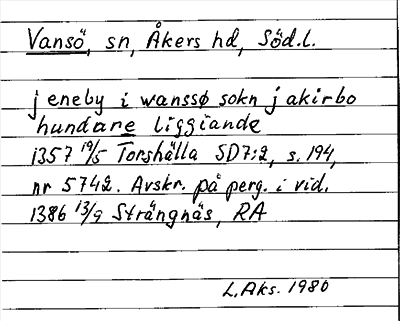 Vansö, sn, Åkers hd, Söd.l.
j eneby i wanssø sokn j akirbo
hundare liggiande
1357 19/5 Torshälla SD7:2, s. 194,
nr 5742. Avskr. på perg. i vid.
1386 13/9 Strängnäs, RA
L. Aks. 1980